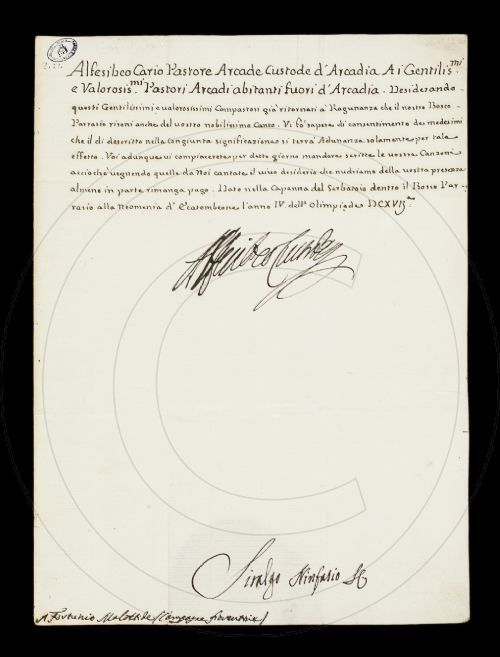 Alfesibeo Cario Pastore Arcade Custode d'Arcadia A i Gentilis.mi
e Valorosis.mi Pastori Arcadi abitanti fuori d'Arcadia. Desiderando
questi Gentilissimi e valorosissimi Compastori già ritornati a Ragunanza che il nostro Bosco
Parrasio risoni anche del vostro nobilissimo Canto. Vi fo sapere di consentimento de medesimi
che il dì descritto nella congiunta significazione si terrà Adunanza solamente per tale
effetto. Voi adunque vi compiacerete per detto giorno mandare scritte le vostre Canzoni
acciochè vegnendo quelle da Noi cantate il vivo desiderio che nudriamo della vostra presenza
almeno in parte rimanga pago. Dato nella Capanna del Serbatoio dentro il Bosco Par-
rasio alla Neomenia d'Ecatombeone l'anno IV. dell'Olimpiade DCXVIJ.
Alfesibeo Custode
Siralgo Ninfasio
A Fortunio